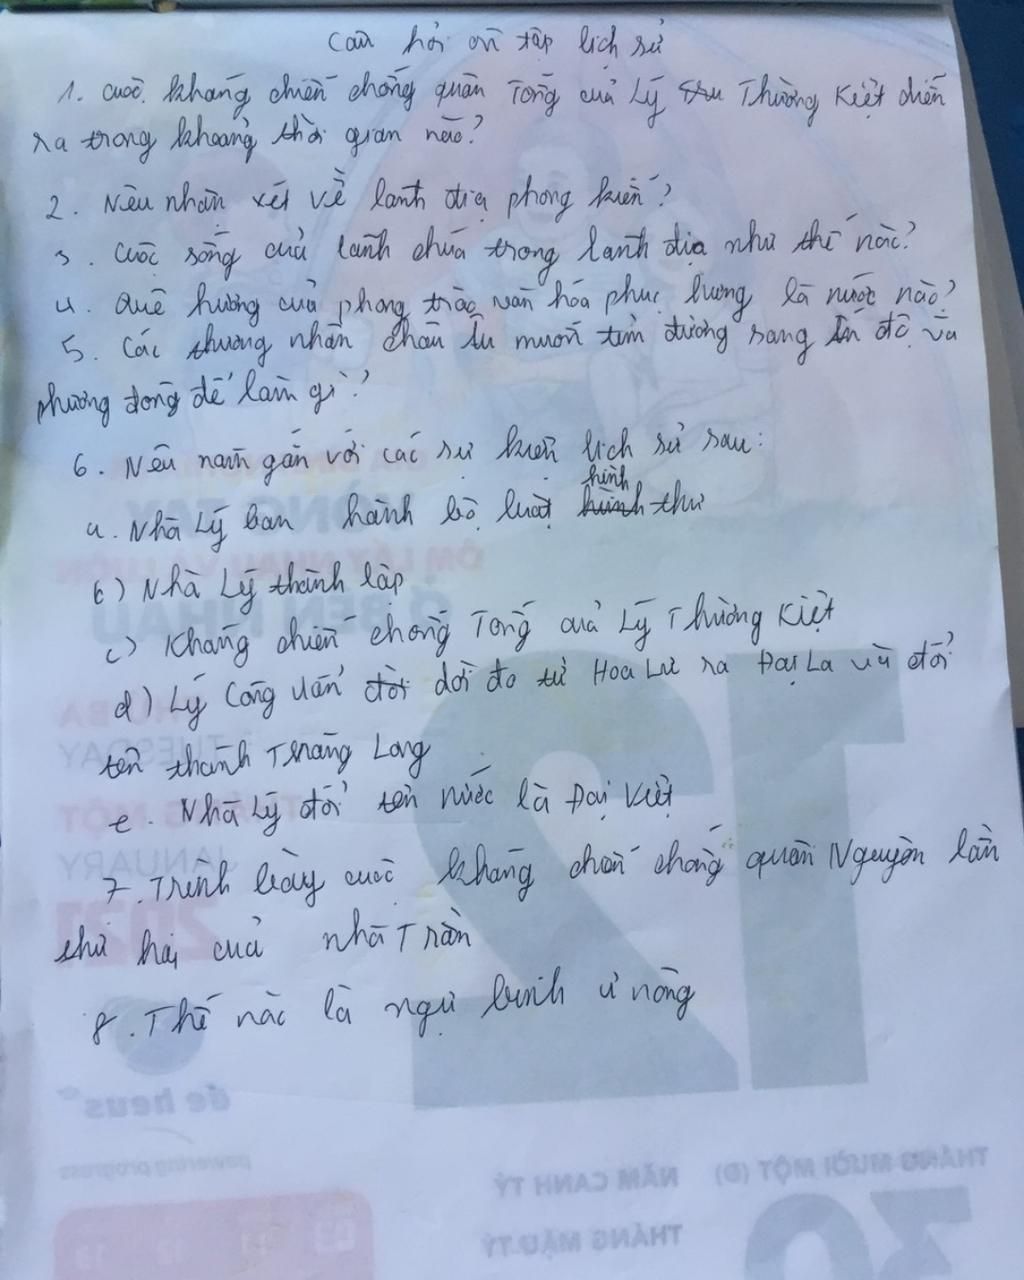 Câu hỏi ôn tập lịch sử
1. Cuộc kháng chiến chống quân Tống của Lý Thường Kiệt diễn
ra trong khoảng thời gian nào?
2. Nêu nhận xét về lãnh địa phong kiến?
3. Cuộc sống của lãnh chúa trong lãnh địa như thế nào?
4. Quê hương của phong trào văn hóa phục hưng là nước nào?
5. Các thương nhân châu Âu muốn tìm đường sang Ấn độ và
phương đông để làm gì?
6. Nêu năm gắn với các sự kiện lịch sử sau:
a. Nhà Lý ban hành bộ luật hình thư
b) Nhà Lý thành lập
c) Kháng chiến chống Tống của Lý Thường Kiệt
d) Lý Công Uẩn dời đô từ Hoa Lư ra Đại La và đổi
tên thành Thăng Long
e. Nhà Lý đổi tên nước là Đại Việt
7. Trình bày cuộc kháng chiến chống quân Nguyên lần
thứ hai của nhà Trần
8. Thế nào là ngụ binh ư nông
VÒNG TAY
ÔM LẤY NHAU VÀ LUÔN
Ở BÊN NHAU
12
THỨ BA
TUESDAY
THÁNG MỘT
JANUARY
2021
de heus
powering progress
THÁNG MƯỜI MỘT (Đ) NĂM CANH TÝ
30
THÁNG MẬU TÝ